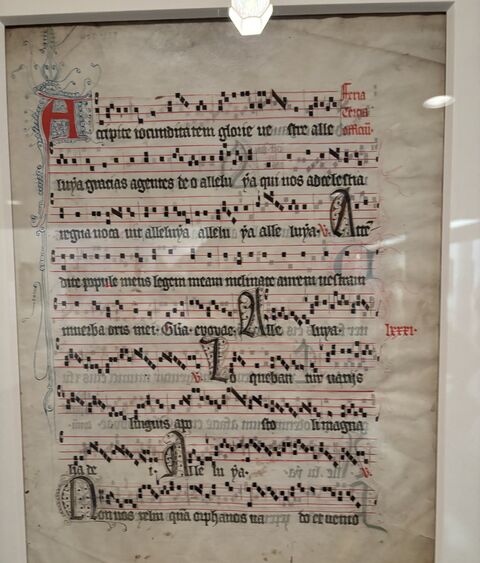 Feria
Tertia
officium.
Accipite iocunditatem glorie ve stre alle
luya gracias agentes deo allelu ya qui nos ad celestia
regna voca vit alleluya allelu ya alle luya. V. Atte
dite popule meus legem meam inclinate aurem vestram
in verba oris mei. Glia. evovae. Alle luya. lxxxi.
V. Lo queban tur varijs
linguis apo sto li magna
lia de i. Alle lu ya. V.
Non vos relin quā orphanos va do et venio